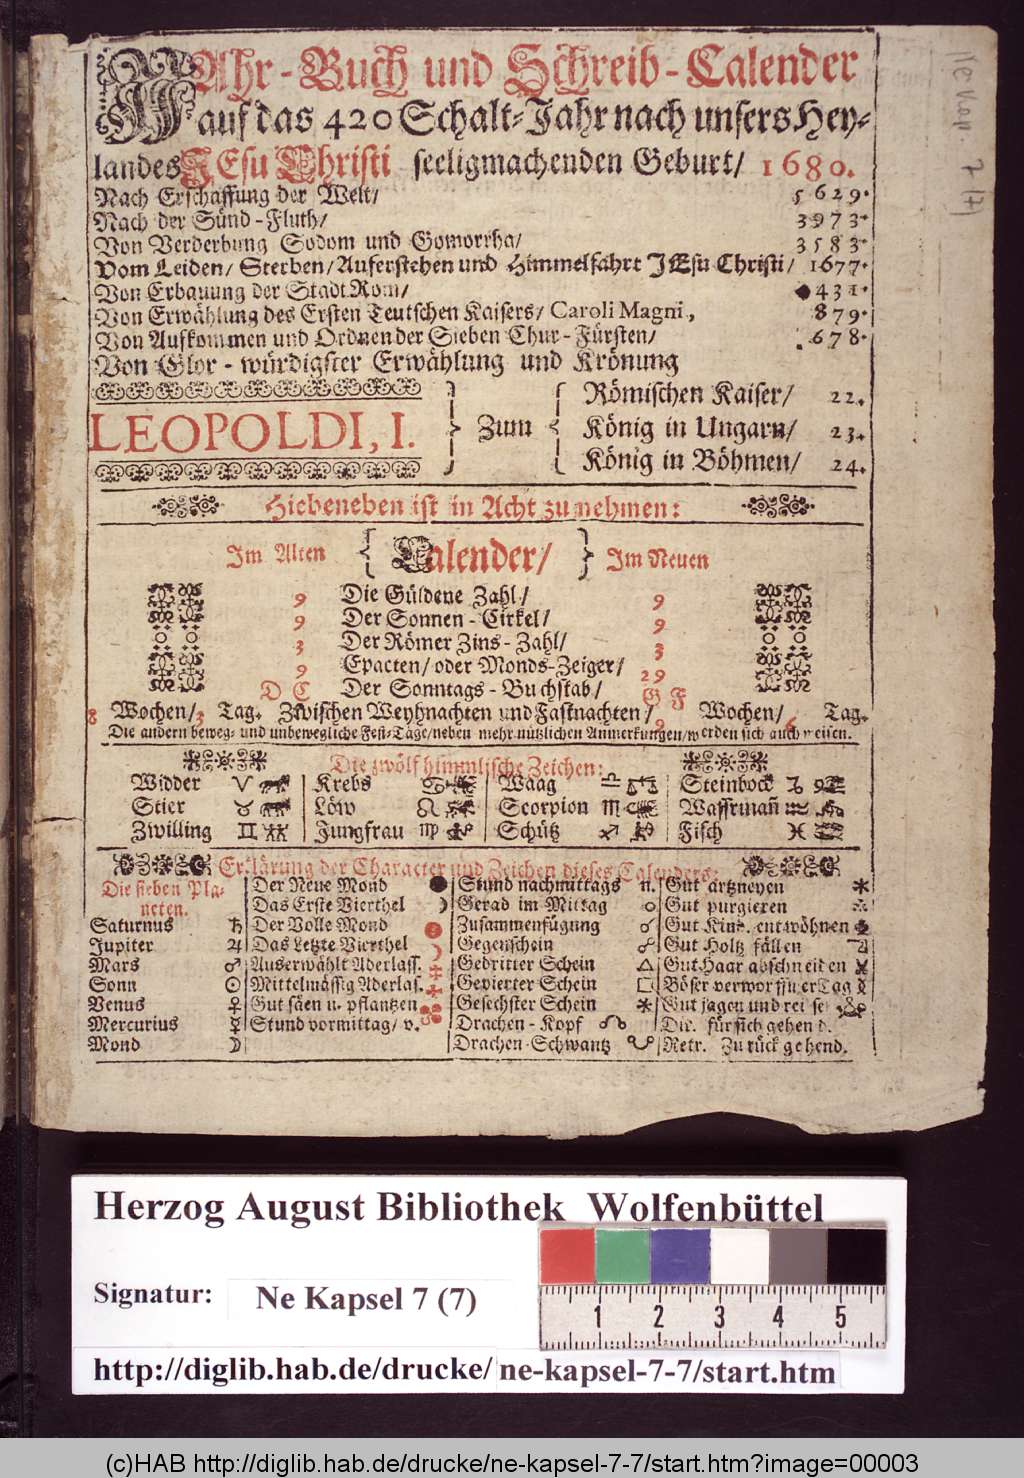 WAhr-Buch und Schreib-Calender
auf das 420 Schalt-Jahr nach unsers Hey-
landes JEsu Christi seeligmachenden Geburt/ 1680.
Nach Erschaffung der Welt/ 5629.
Nach der Sünd-Fluth/ 3973.
Von Verderbung Sodom und Gomorrha/ 3583.
Vom Leiden/ Sterben/ Auferstehen und Himmelfahrt JEsu Christi/ 1677.
Von Erbauung der Stadt Rom/ 431.
Von Erwählung des Ersten Teutschen Kaisers/ Caroli Magni, 879.
Von Aufkommen und Ordnen der Sieben Chur-Fürsten/ 678.
Von Glor-würdigster Erwählung und Krönung
LEOPOLDI, I. } Zum {
Römischen Kaiser/ 22.
König in Ungarn/ 23.
König in Böhmen/ 24.
Hiebeneben ist in Acht zu nehmen:
Im Alten { Calender/ } Im Neuen
9 Die Güldene Zahl/ 9
9 Der Sonnen-Cirkel/ 9
3 Der Römer Zins-Zahl/ 3
9 Epacten/ oder Monds-Zeiger/ 29
D C Der Sonntags-Buchstab/ G F
8 Wochen/ 3 Tag. Zwischen Weyhnachten und Fastnachten/ 9 Wochen/ 6 Tag.
Die andern beweg- und unbewegliche Fest-Täge/ neben mehr nützlichen Anmerkungen/ werden sich auch weisen.
Die zwölf himmlische Zeichen:
Widder ♈ Krebs ♋ Waag ♎ Steinbock ♑
Stier ♉ Löw ♌ Scorpion ♏ Wassrmañ ♒
Zwilling ♊ Jungfrau ♍ Schütz ♐ Fisch ♓
Erklärung der Character und Zeichen dieses Calenders:
Die sieben Pla-
neten.
Saturnus ♄
Jupiter ♃
Mars ♂
Sonn ☉
Venus ♀
Mercurius ☿
Mond ☽
Der Neue Mond ●
Das Erste Vierthel ☽
Der Volle Mond
Das Letzte Vierthel
Auserwählt Aderlass.
Mittelmässig Aderlas.
Gut säen u. pflantzen
Stund vormittag/ v.
Stund nachmittags n.
Gerad im Mittag o
Zusammenfügung ☌
Gegenschein ☍
Gedritter Schein △
Gevierter Schein □
Gesechster Schein ✱
Drachen-Kopf ☊
Drachen-Schwantz ☋
Gut artzneyen
Gut purgieren
Gut Kind. entwöhnen
Gut Holtz fällen
Gut Haar abschneiden
Böser verworffner Tag
Gut jagen und reise
Dir. für sich gehend.
Retr. Zurück gehend.
Ne Kap. 7 (7)
Herzog August Bibliothek Wolfenbüttel
Signatur: Ne Kapsel 7 (7)
1 2 3 4 5
http://diglib.hab.de/drucke/ne-kapsel-7-7/start.htm
(c)HAB http://diglib.hab.de/drucke/ne-kapsel-7-7/start.htm?image=00003